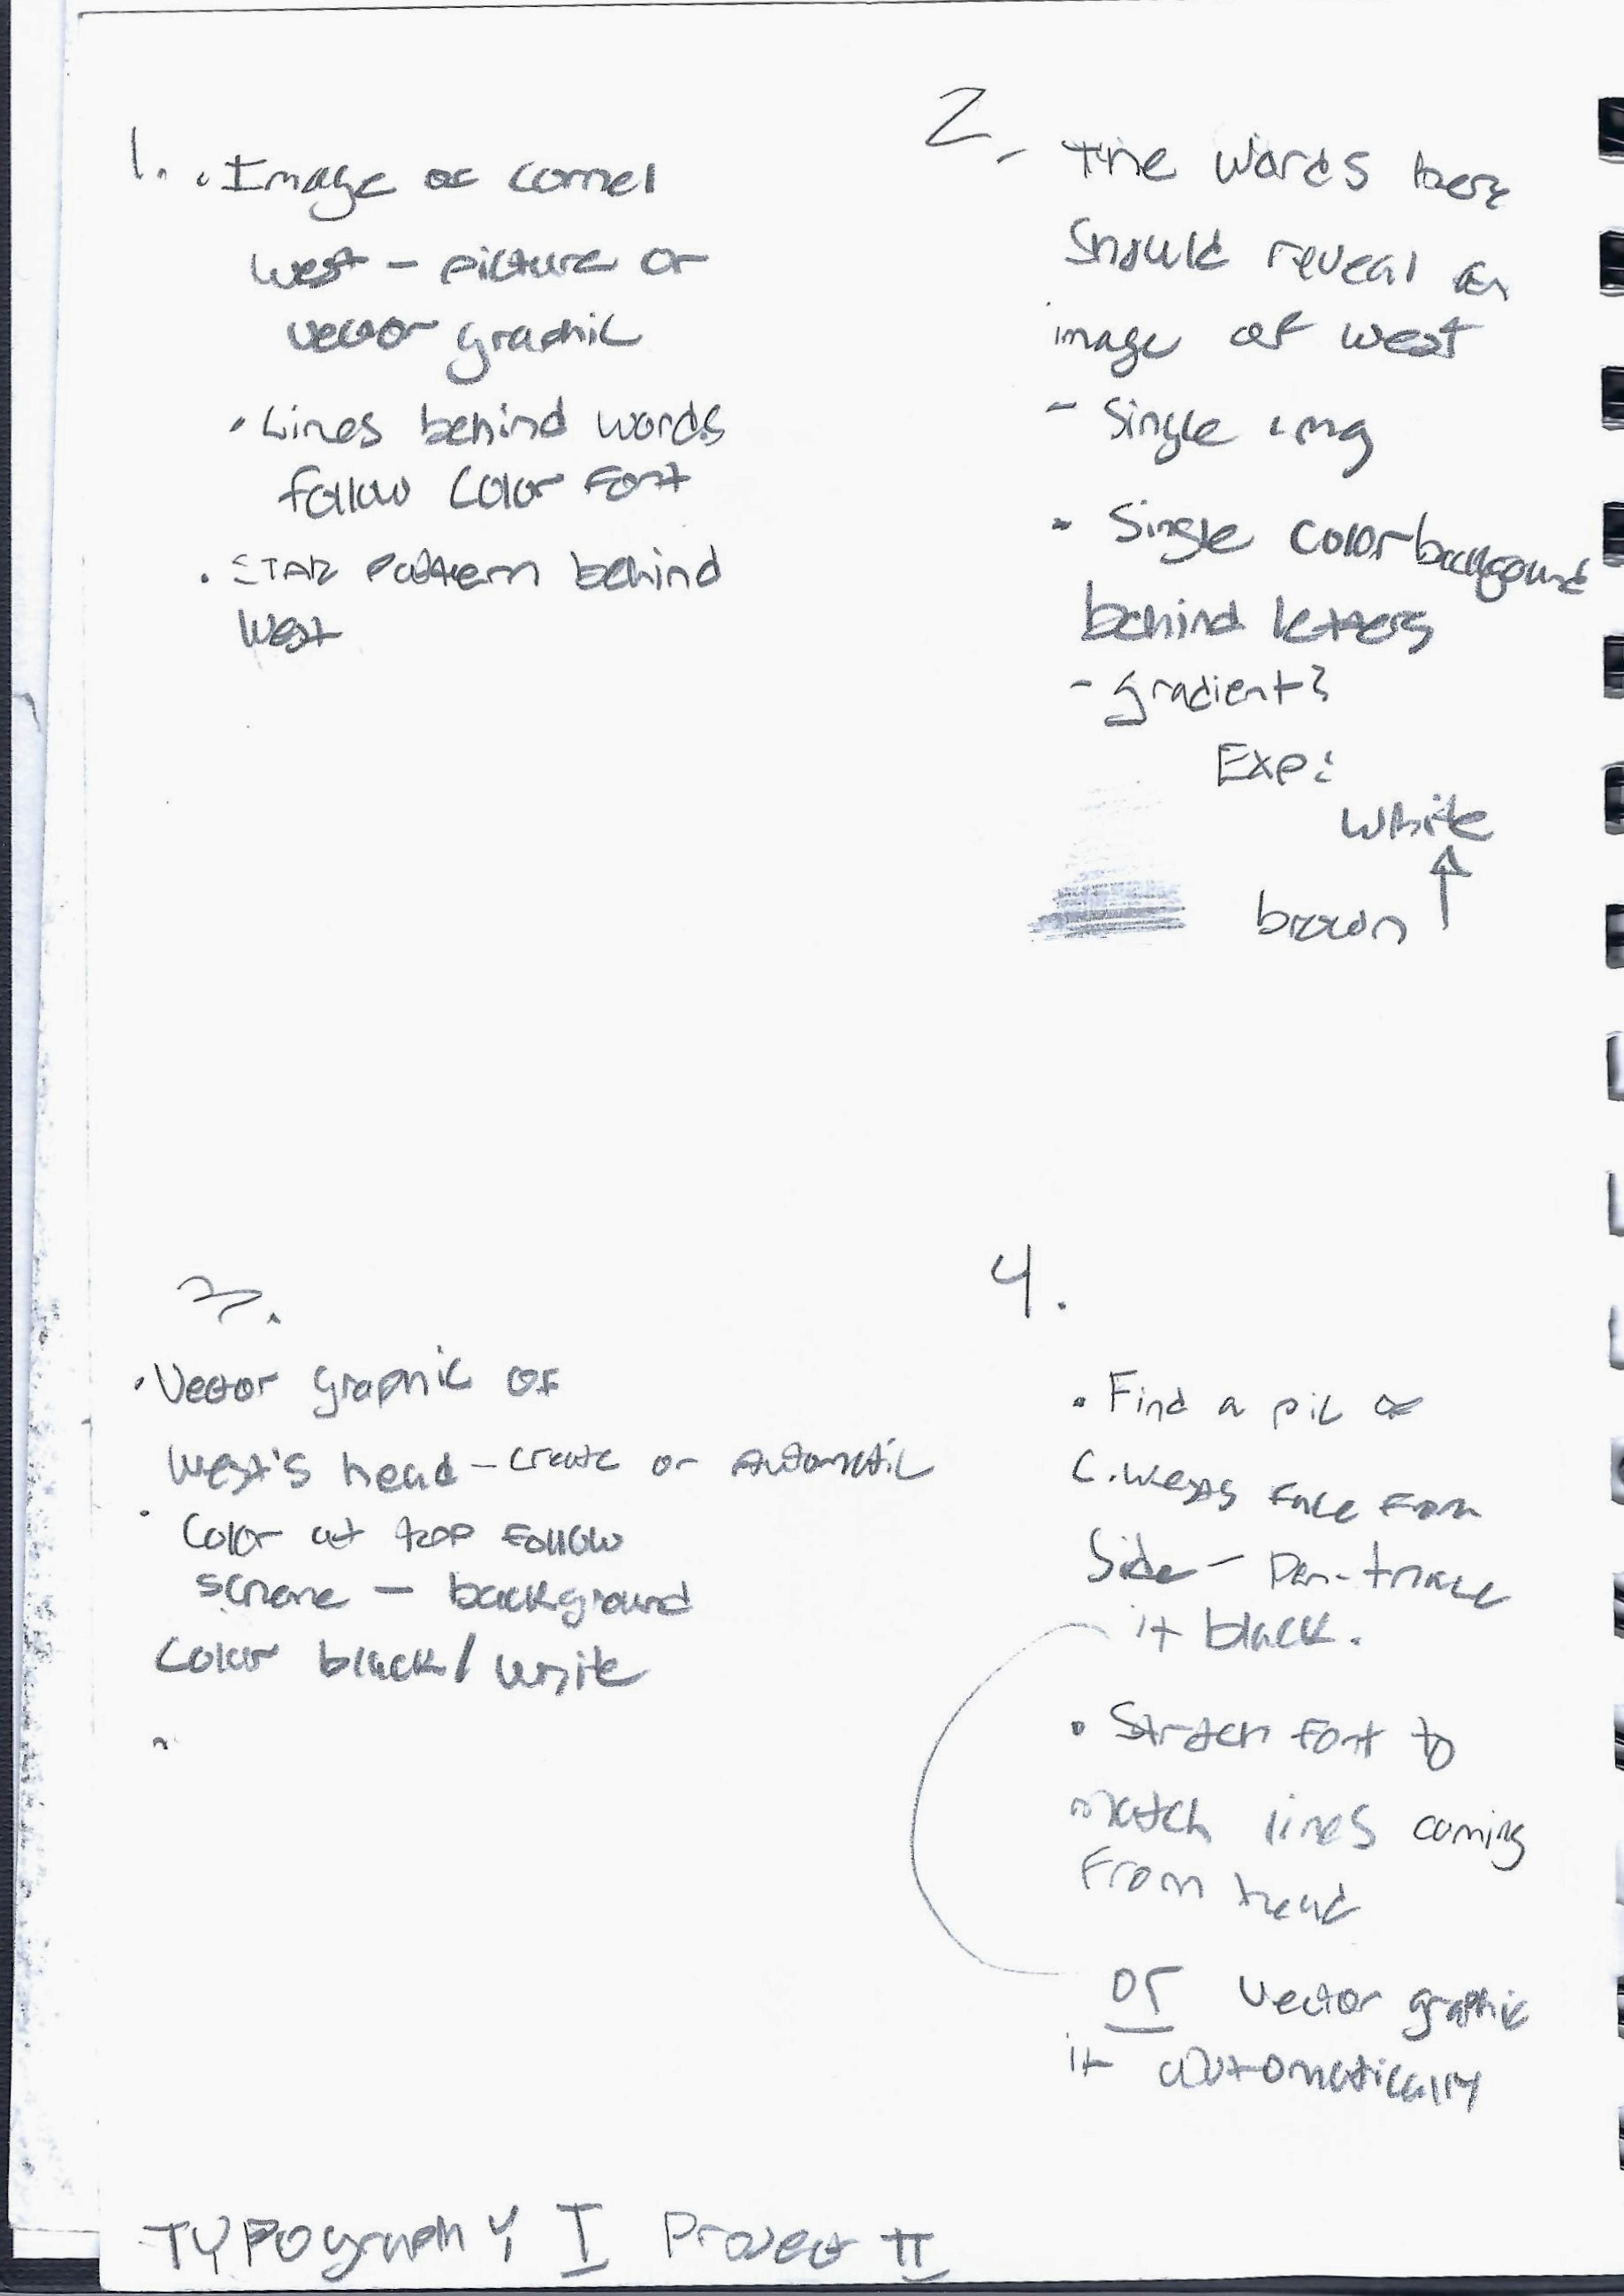 1. • Image of Cornel
West - picture or
vector graphic
• Lines behind words
follow color font
• STAR pattern behind
West
2. - The words here
should reveal an
image of West
- Single img
- Single color background
behind letters
- gradient?
Exp:
white
brown
3.
• Vector graphic of
West's head - create or automatic
• Color at top follow
scheme - background
Color black/white
4.
• Find a pic of
C. Wests face from
Side - Pen-trace
it black.
• Stretch font to
match lines coming
From head
or vector graphic
it automatically
Typography I Project II